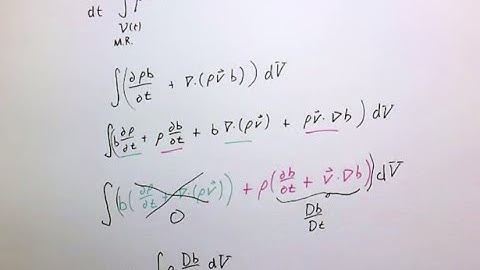 dt ∫ρ
V(t)
M.R.
∫(∂ρb/∂t + ∇·(ρv⃗ b)) dV
∫(b ∂ρ/∂t + ρ ∂b/∂t + b ∇·(ρv⃗) + ρv⃗·∇b) dV
∫(b(∂ρ/∂t + ∇·(ρv⃗)) + ρ(∂b/∂t + v⃗·∇b)) dV
0 Db/Dt
∫ρ Db dV